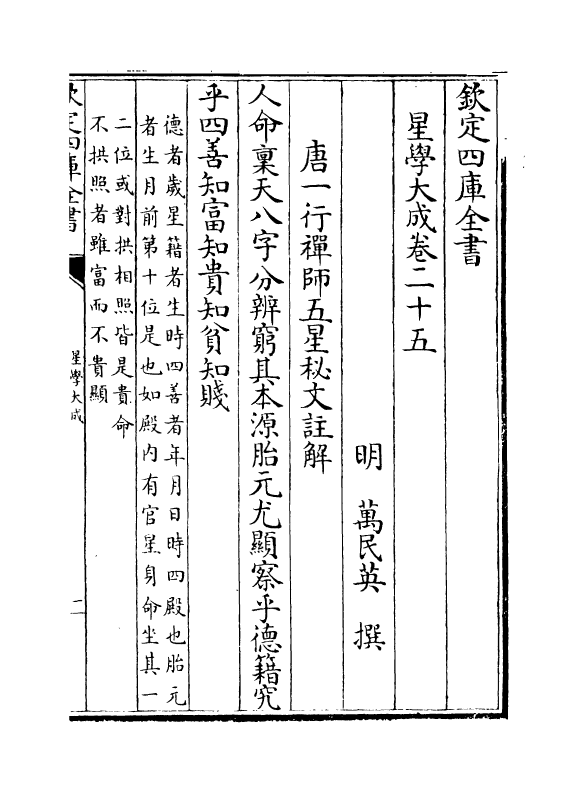 欽定四庫全書
星學大成卷二十五
明　萬民英　撰
唐一行禪師五星秘文註解
人命稟天八字分辨窮其本源胎元尤顯察乎德籍究
乎四善知富知貴知貧知賤
德者歲星籍者生時四善者年月日時四殿也胎元
者生月前第十位是也如殿內有官星身命坐其一
二位或對拱相照皆是貴命
不拱照者雖富而不貴顯
欽定四庫全書
星學大成
二